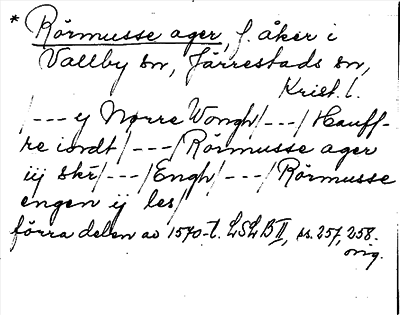 * Rörmusse ager, f. åker i
Vallby sn, Järrestads sn,
Krist. l.
/---ij Nørre Wongh/---/Hauff-
re iordt/---/Rörmusse ager
iij skr/---/Engh/---/Rörmusse
engen ij les/
förra delen av 1570-t. LSLB II, ss. 257, 258.
orig.